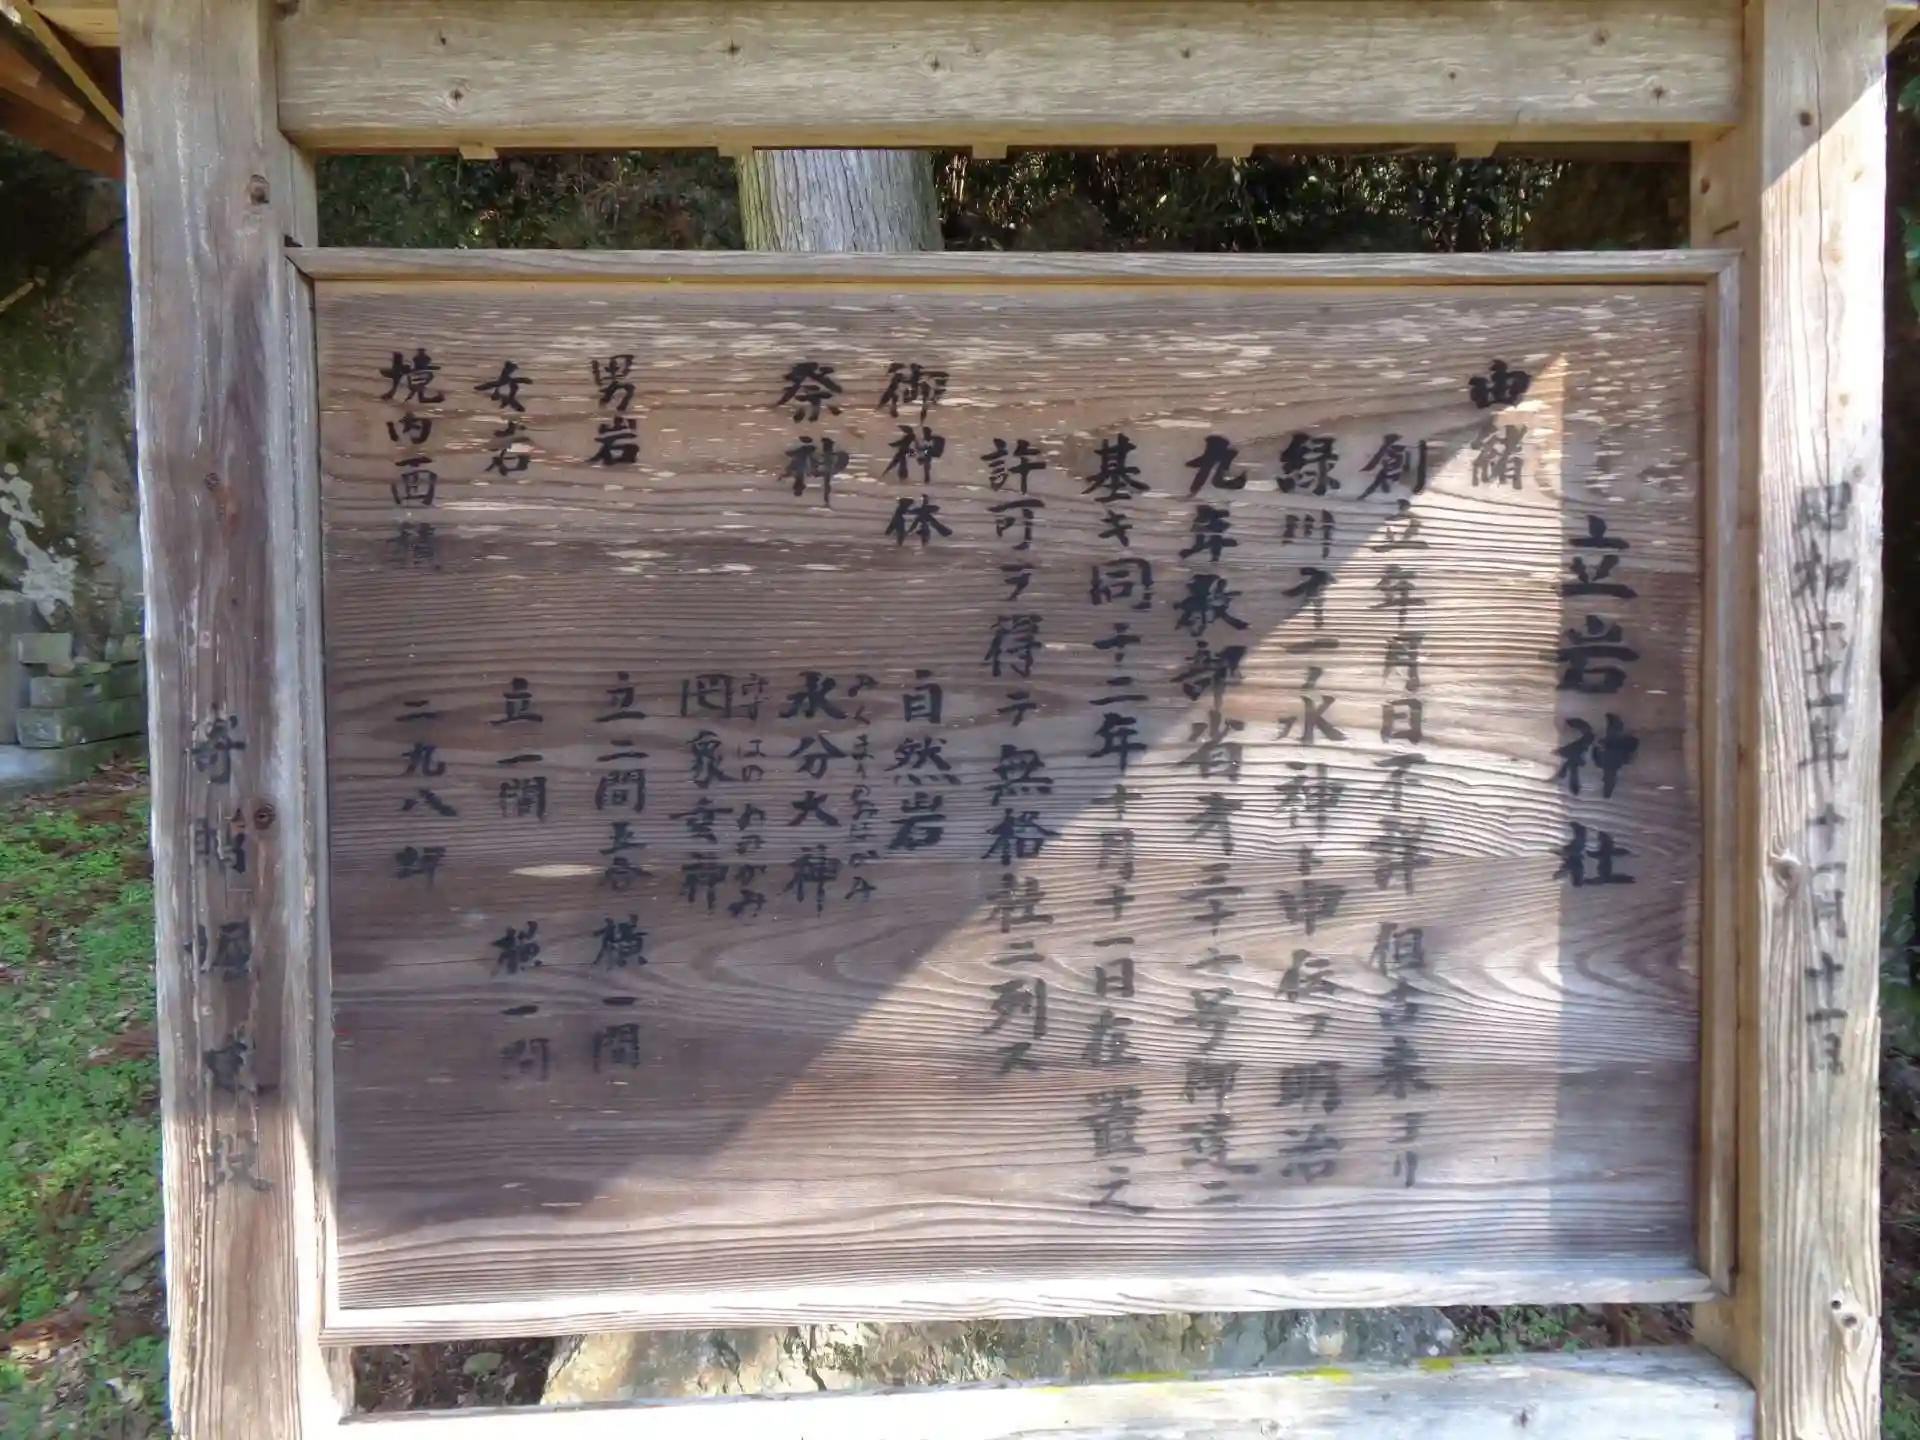 昭和六十一年十一月十一日
立岩神社
由緒
創立年月日不詳 但古来ヨリ
緑川才一ノ水神ト申伝フ明治
九年教部省才三十七号御達ニ
基キ同十二年十月十一日在置之
許可ヲ得テ無格社ニ列ス
御神体 自然岩
みくまりのおほかみ
祭神 水分大神
みずはのめのかみ
罔象女神
男岩 立二間五合 横一間
女岩 立一間 横一間
境内面積 二九八坪
寄贈 堀